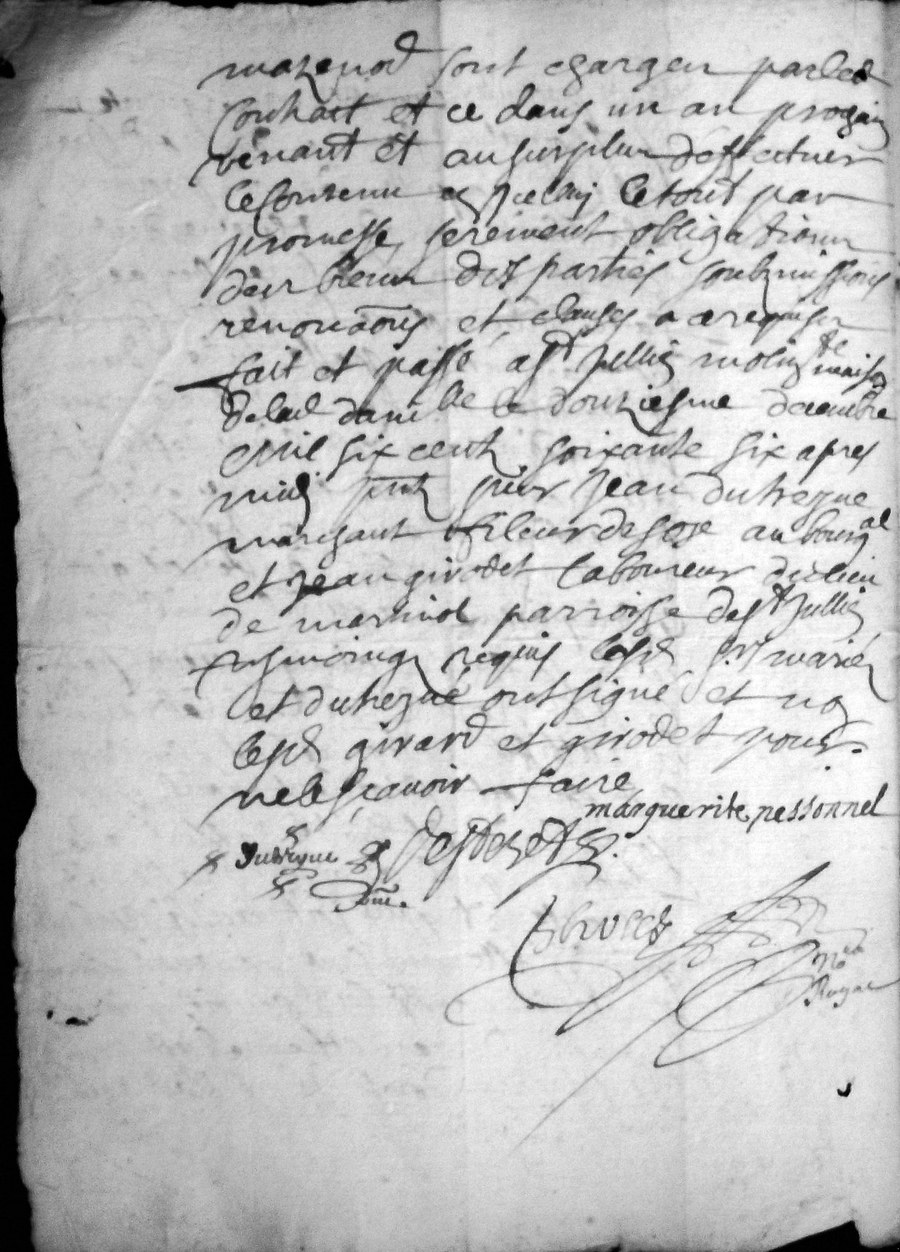 mazenod sont chargeu par led
Contract et ce dans un an prochain
venant et au surplus deffectuer
le contenu en jcelluy le tout par
promesse, serement obligations
deurs biens dits parties soubmissions
renonciaons et clauses a ce requises
fait et passé a St Jullien molin te maison
de lad dam lle le douziesme decembre
mil six centz soixante six apres
midi pntz sieur Jean dutreyve
marchant fileur de soye au bourg al
et Jean girodet laboureur du lieu
de parroisse de St Jullien
tesmoings requis lesd srs mariés
et dutreyve ont signé et non
lesd girard et girodet pour
ne le sçavoir faire
marguerite pessonnel
Dutreyve
No re
Royal